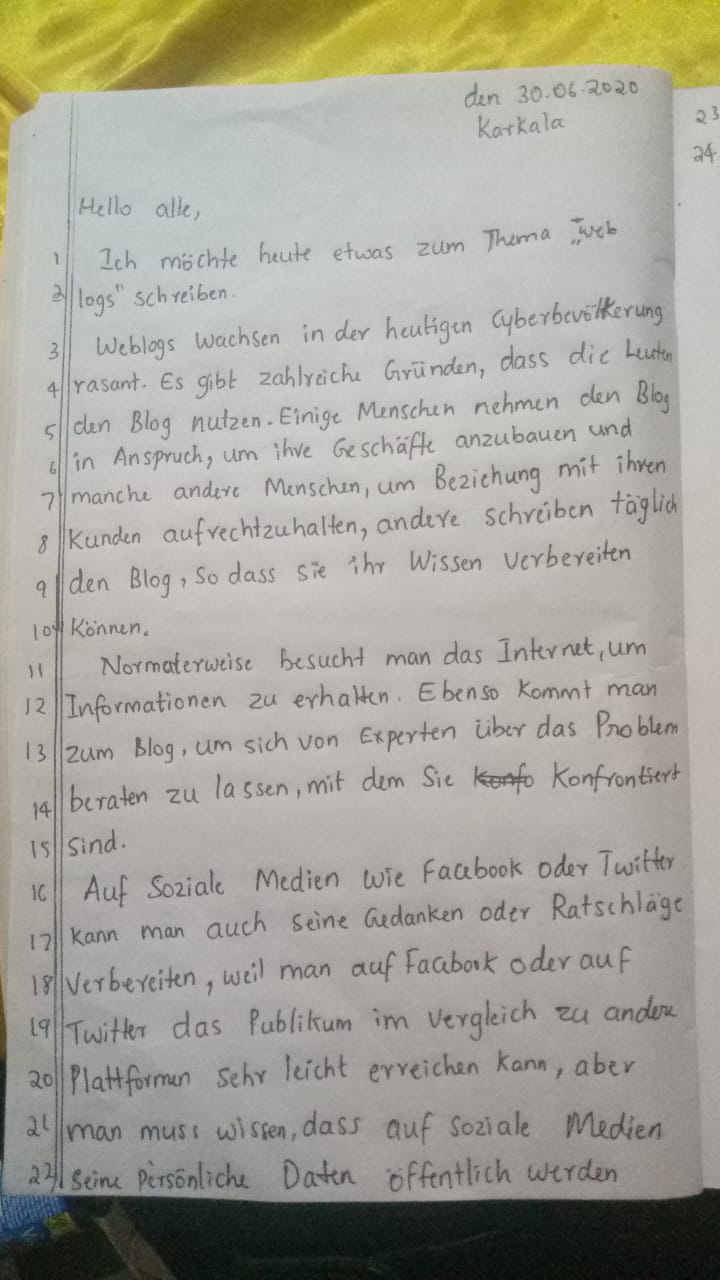 den 30.06.2020
Karkala
23
24
Hello alle,
1 Ich möchte heute etwas zum Thema „Web
2 logs" schreiben.
3 Weblogs wachsen in der heutigen Cyberbevölkerung
4 rasant. Es gibt zahlreiche Gründen, dass die Leuten
5 den Blog nutzen. Einige Menschen nehmen den Blog
6 in Anspruch, um ihre Geschäfte anzubauen und
7 manche andere Menschen, um Beziehung mit ihren
8 Kunden aufrechtzuhalten, andere schreiben täglich
9 den Blog, so dass sie ihr Wissen verbereiten
10 Können.
11 Normaterweise besucht man das Internet, um
12 Informationen zu erhalten. Ebenso kommt man
13 zum Blog, um sich von Experten über das Problem
14 beraten zu lassen, mit dem Sie Konfrontiert
15 sind.
16 Auf Soziale Medien wie Facebook oder Twitter
17 kann man auch seine Gedanken oder Ratschläge
18 Verbereiten, weil man auf Facebook oder auf
19 Twitter das Publikum im Vergleich zu andere
20 Plattformen sehr leicht erreichen kann, aber
21 man muss wissen, dass auf soziale Medien
22 seine persönliche Daten öffentlich werden